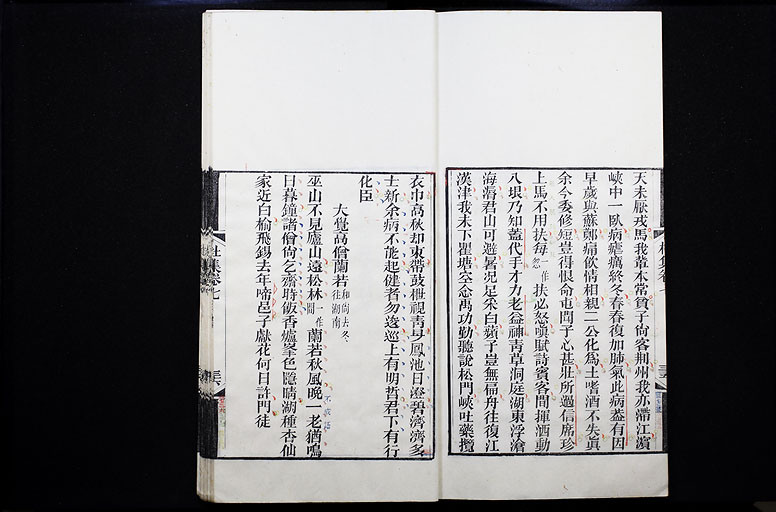 天未厭戎馬我輩本常貧子尚客荊州我亦滯江濱
峽中一臥病瘧癘終冬春春復加肺氣此病蓋有因
早歲與蘇鄭痛飲情相親二公化為土嗜酒不失真
余今委修短豈得恨命屯聞子心甚壯所過信席珍
上馬不用扶每一作忽扶必怒嗔賦詩賓客間揮灑動
八垠乃知蓋代手才力老益神青草洞庭湖東浮滄
海漘君山可避暑況足采白蘋子豈無扁舟往復江
漢津我未下瞿塘空念禹功勤聽說松門峽吐藥攬
衣巾高秋却束帶鼓枻視青旻鳳池日澄碧濟濟多
士新余病不能起健者勿逡巡上有明哲君下有行
化臣
大覺高僧蘭若和尚去冬往湖南
巫山不見廬山遠松林一作間蘭若秋風晚一老猶鳴
日暮鐘諸僧尚乞齋時飯香爐峯色隱晴湖種杏仙
家近白榆飛錫去年啼邑子獻花何日許門徒
杜集卷七